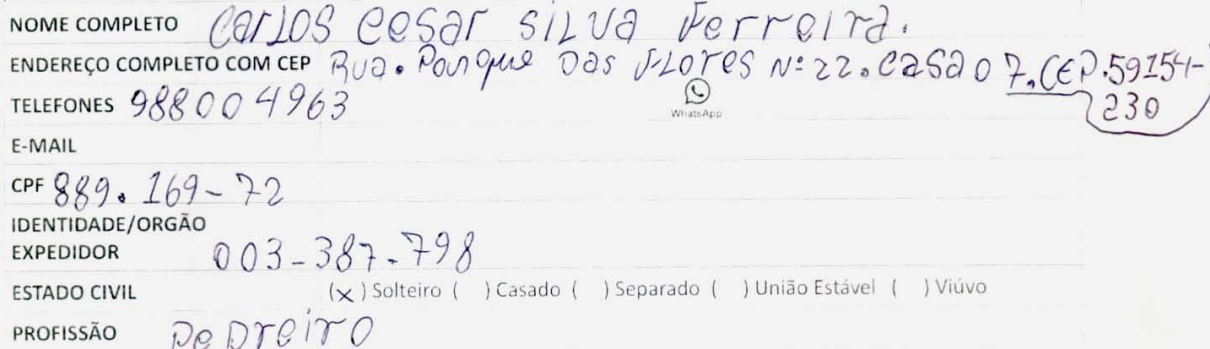 NOME COMPLETO Carlos Cesar Silva Ferreira.
ENDEREÇO COMPLETO COM CEP Rua. Parque Das Flores N: 22. Casa 07. CEP. 59154-
230
TELEFONES 988004963
WhatsApp
E-MAIL
CPF 889. 169-72
IDENTIDADE/ORGÃO
EXPEDIDOR 003-387-798
ESTADO CIVIL (x) Solteiro ( ) Casado ( ) Separado ( ) União Estável ( ) Viúvo
PROFISSÃO Pedreiro